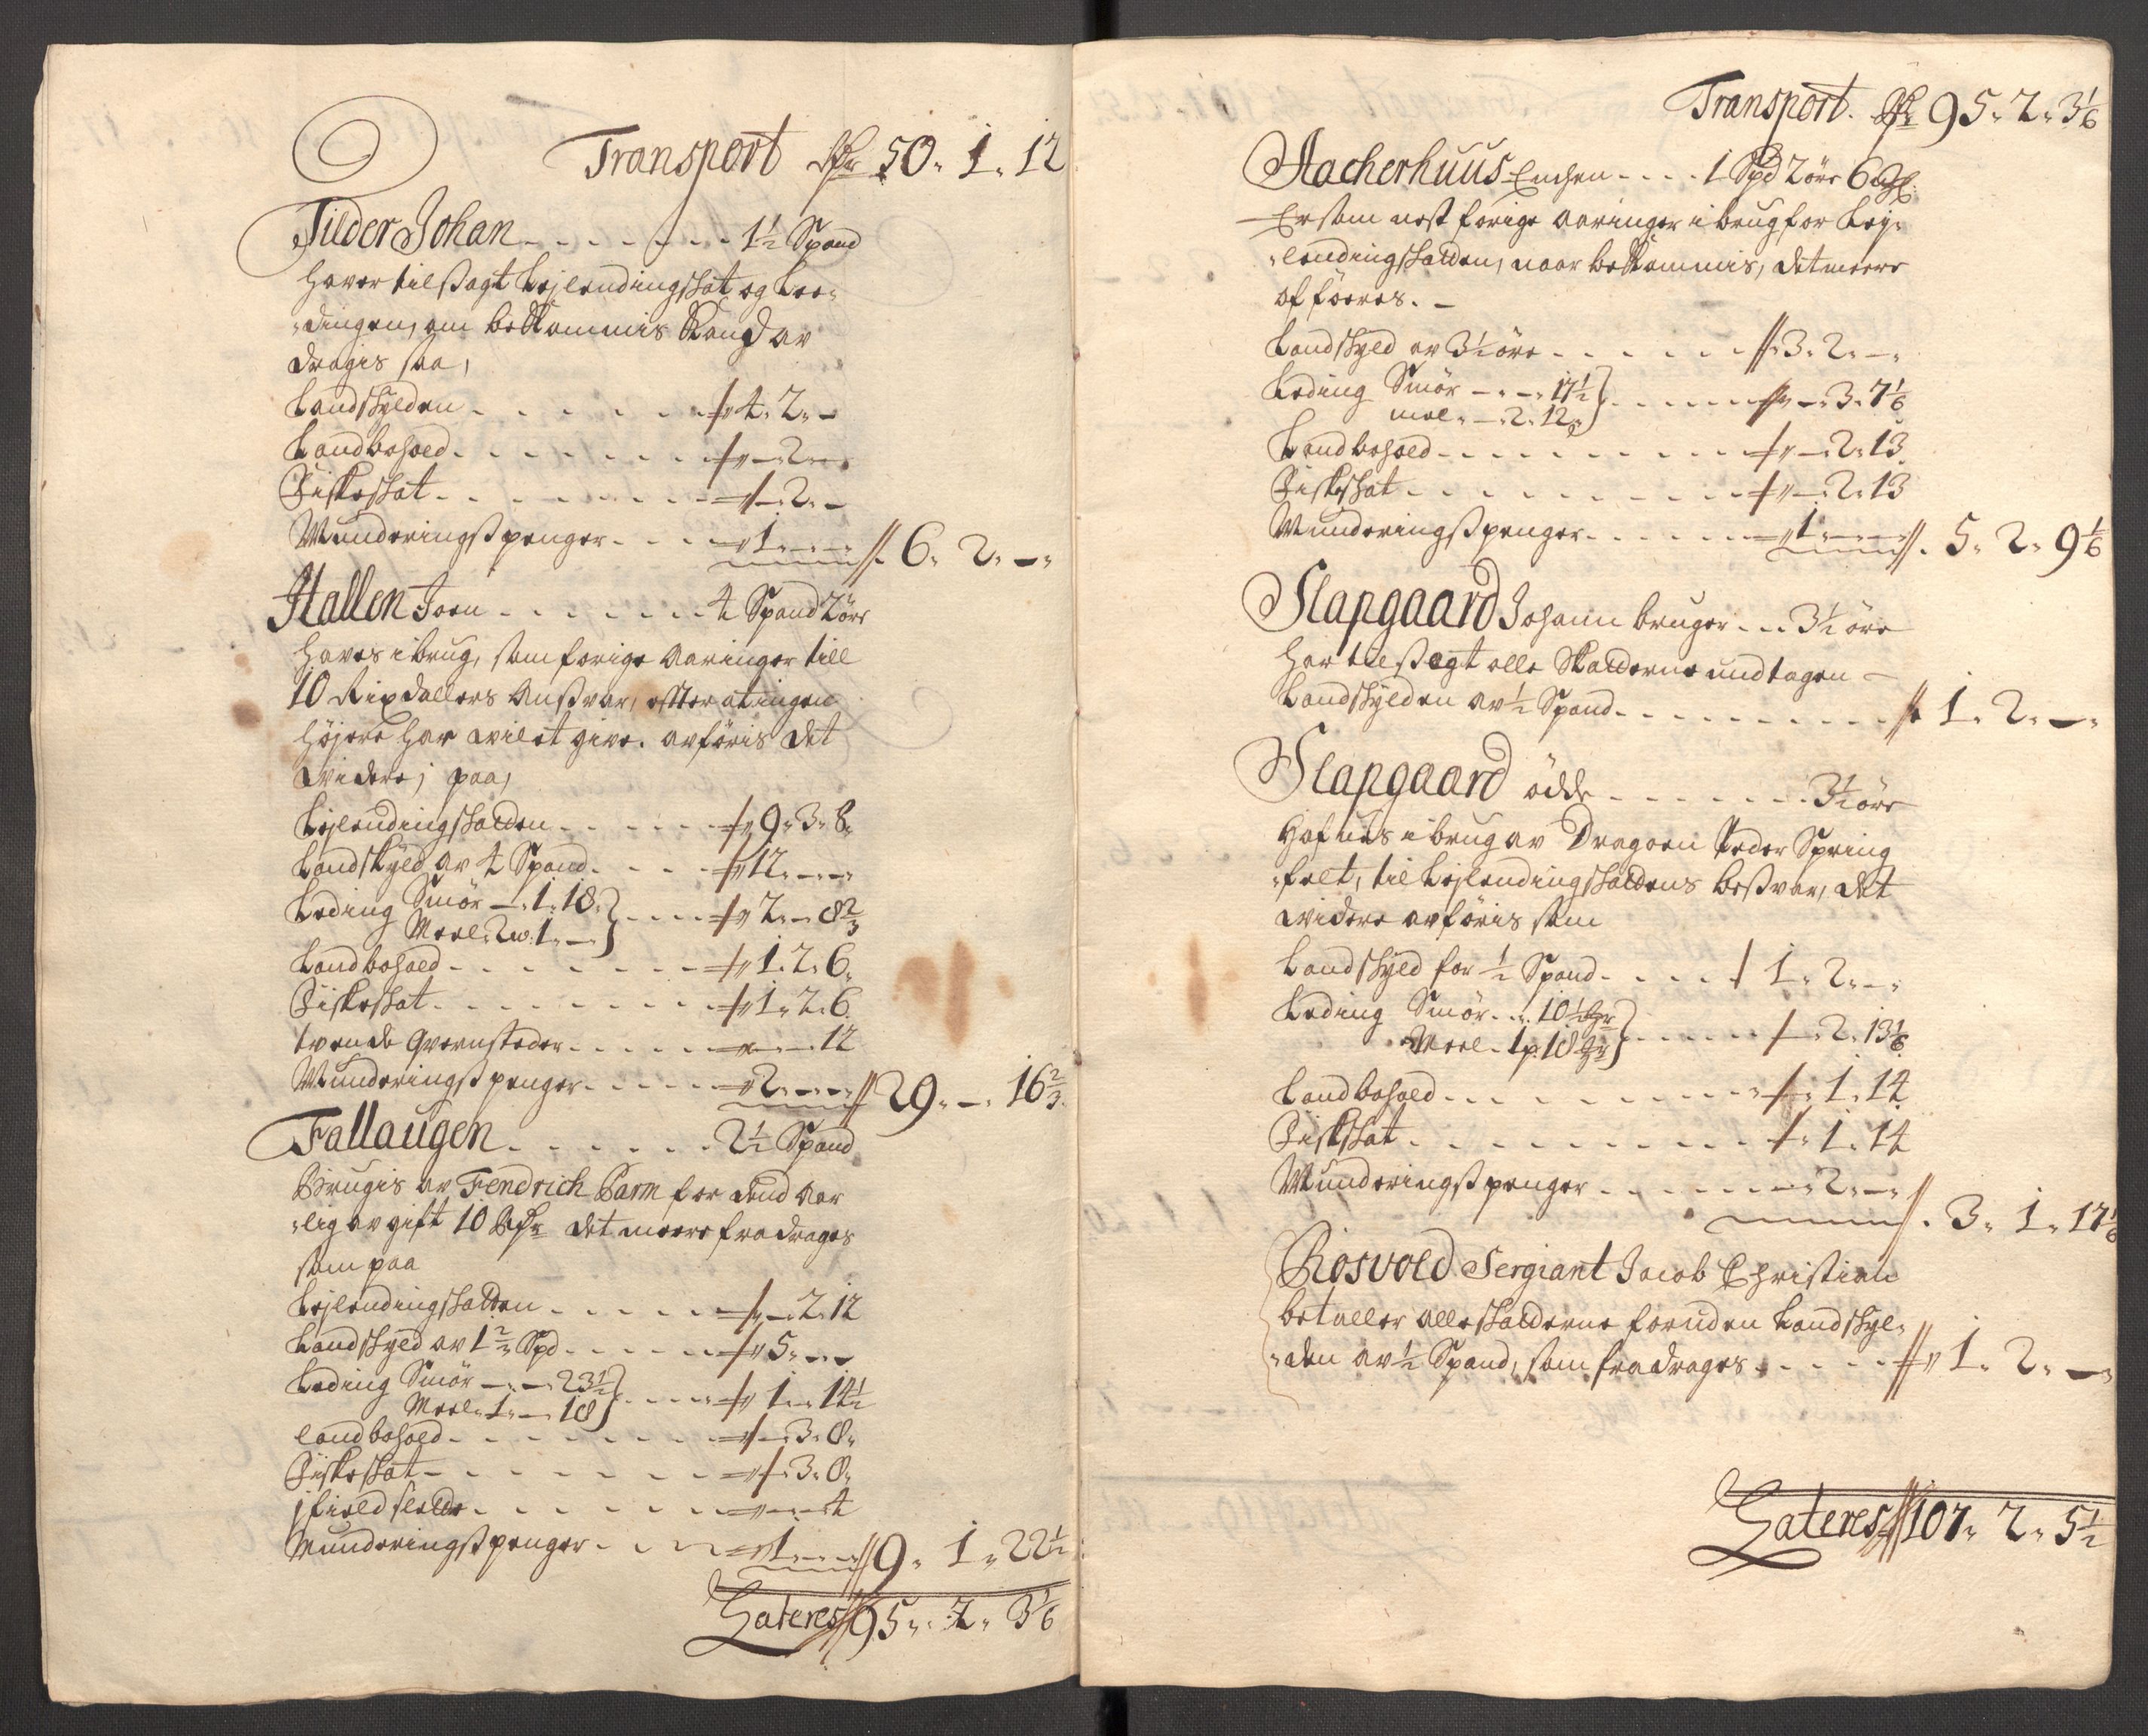 Transport Rdr 50. 1. 12
Tilder Johan - - - - - - - 1½ Spand
Haver tilsagt Lejlendingsskat og Lee-
dingen, om bekommis kand av
dragis saa,
Landskylden - - - - - - 4. 2. -
Landbohold - - - - - - - - 2 - -
Fiskeskat - - - - - - - - 2. -
Munderingspenger - - - 1. - - 6. 2. -
Hallen Joen - - - - - - - 4 Spand 2 öre
Haves i brug, som forige Aaringer till
10 Rixdallers Ansvar, efter at ingen
højere har vilet give. avföris det
videre, paa,
Lejlendingskatten - - - - - 9. 3. 8.
Landskyld av 4 Spand - - - 12. - -
Leding Smör - 1. 18.
Meel 2 w. 1. - } - - - 2. - 8⅔
Landbohold - - - - - - - 1. 2. 6.
Fiskeskat - - - - - - - 1. 2. 6.
tvende Qvernsteder - - - - - - - 12
Munderingspenger - - - - 2. - - 29. - . 16⅔.
Fallaugen - - - - - - 2½ Spand
Brugis av Fendrich Parm for dend Aar
lig avgift 10 Rdr det meere fradrages
som paa
Lejlendingskatten - - - - - - 2. 12
Landskyld av 1 2/2 Spd - - - - - 5. - -
Leding Smör - . - 23½
Meel. 1. - 18 } - - - 1. - 14½
Landbohold - - - - - - - - . 3. 8.
Fiskeskat - - - - - - - . 3. 8.
j field sætter - - - - - - - - - 4
Munderingspenger - - - 1. - - 9. 1. 22½
Lateres 95. 2. 3⅙
Transport. Rdr 95. 2. 3⅙
Aacherhuus Enchen - - - - 1 Spd 2 öre 6
Er som nest forige Aaringer i brug for Lej-
lendingskatten, naar bekommis, det meere
afföeres. -
Landskyld av 3½ öre - - - - - - 3. 2. - .
Leding Smör - . - . 17½
meel. - . 2. 12. } - - - - . 3. 7⅙
Landbohold - - - - - - - - - - . 2. 13
Fiskeskat - - - - - - - - - . 2. 13
Munderingspenger - - - - - - 1. - - 5. 2. 9⅙
Slapgaard Johann bruger - - . 3½ öre
Har tilsagt alle Skatterne undtagen -
Landskylden av ½ Spand - - - - - - - - - - 1. 2. - .
Slapgaard ödde - - - - - - - . 3½ öre
Hafves i brug av Dragoen Peder Spring
felt, til Lejlendingskattens besvar, det
videre avföris som
Landskyld for ½ Spand - - - - - 1. 2. - .
Leding Smör - . 10½ gr
Meel - 1 p. 18 gr } - - - - - . 2. 13⅙
Landbohold - - - - - - - - - . 1. 14
Fiskskat - - - - - - - - - . 1. 14
Munderingspenger - - - - - - - 2. - . 3. 1. 17⅙
Rosvold Sergiant Jacob Christian
betaller alle skatterne foruden Landskyl-
den av ½ Spand, som fradrages . - - - - 1. 2. - .
Lateres 107. 2. 5½